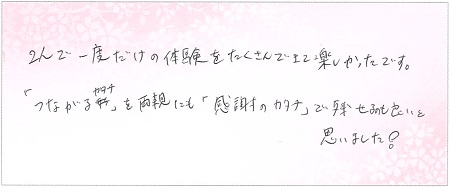 2人で一度だけの体験をたくさんできて楽しかったです。
「つながるカタチ」を両親にも「感謝のカタチ」で残せるのも良いと
思いました?